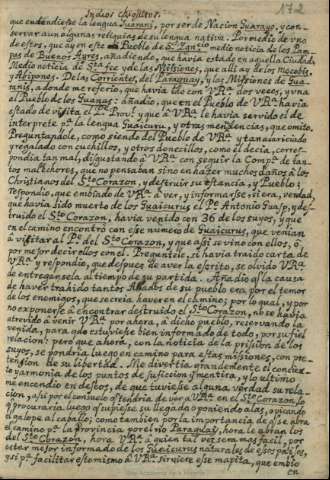 Indios chiquitos. 172
que entendiesse la lengua Guarani, por ser de Nacion Guarayo, y con-
servar aun algunas reliquias de su lengua nativa. Por medio de uno
de estos, que ay en este Pueblo de Sto. Ignacio medio noticia de los Pam-
pas de Buenos Ayres, añadiendo, que havia estado en aquella Ciudad.
Medio noticia de Sta. Fee y de las Missiones, que alli ay de los Mocobis
y Abipones. De las Corrientes, del Paraguay, y las Missiones de Gua-
ranis, a donde me referio, que havia ido con VRa. dos veces, y una
al Pueblo de los Guanas: añadio, que en el Pueblo de VRa. havia
estado de visita el Pe. Provl. y que à VRa. le havia servido el de
interprete pa. la lengua Guaicuru, y otras menudencias, que omito.
Preguntandole, como siendo del Pueblo de VRa. y tan acariciado
y regalado con cuchillos, y otros donecillos, como el decia, corres-
pondia tan mal, disgustando à VRa. con seguir la Compa. de tan-
tos malechores, que no pensaban sino en hazer muchos daños à los
Christianos del Sto. Corazon, y destruir su estancia, y Pueblo;
Respondio, que embiado de VRa. à ver, è informarse, si era verdad,
que havia sido muerto de los Guaicurus el Pe. Antonio Guasp, y des-
truido el Sto. Corazon, havia venido con 36 de los suyos, y que
en el camino encontrò con esse numero de Guaicurus, que venian
à visitar al Pe. del Sto. Corazon, y que assi se vino con ellos, ò
por mejor decir ellos con el. Preguntele, si havia traido carta de
VRa. y respondio, que despues de aver la escrito, se olvidò VRa.
de entregarsela al tiempo de su partida. Añadio q̃ la causa
de haver trahido tantos Aliados de su pueblo era por el temor
de los enemigos, que se creia, haver en el camino; por lo qual, y por
no exponerse à encontrar destruido el Sto. Corazon, no se havia
atrevido à venir VRa. por ahora, à dicho pueblo, reservando la
venida, para q̃do estuviesse bien informado de todo, por su fiel
relacion: pero que ahora, con la noticia de la prision de los
suyos, se pondria luego en camino para estas missiones, con pre-
tension de su libertad. Me divertia grandemente el concier-
to y armonia de los puntos de su ficcion y mentira, y lo ultimo
me encendio en deseos, de que tuviesse alguna verdad su rela-
cion, y assi por el consuelo q̃ tendria de ver à VRa. en el Sto. Corazon,
y procuraria, luego q̃ supiesse su llegada poniendo alas, o picando
galope al caballo; como tambien por la importancia de que se abra
el camino pa. la provincia por el rio Paraguay, hora le abran los
del Sto. Corazon, hora VRa. à quien tal vez sera mas facil, por
estar mejor informado de los Guaicurus naturales de esos paises,
y si pa. facilitar este mismo à VRa. sirviere esse mapita, que embio
en